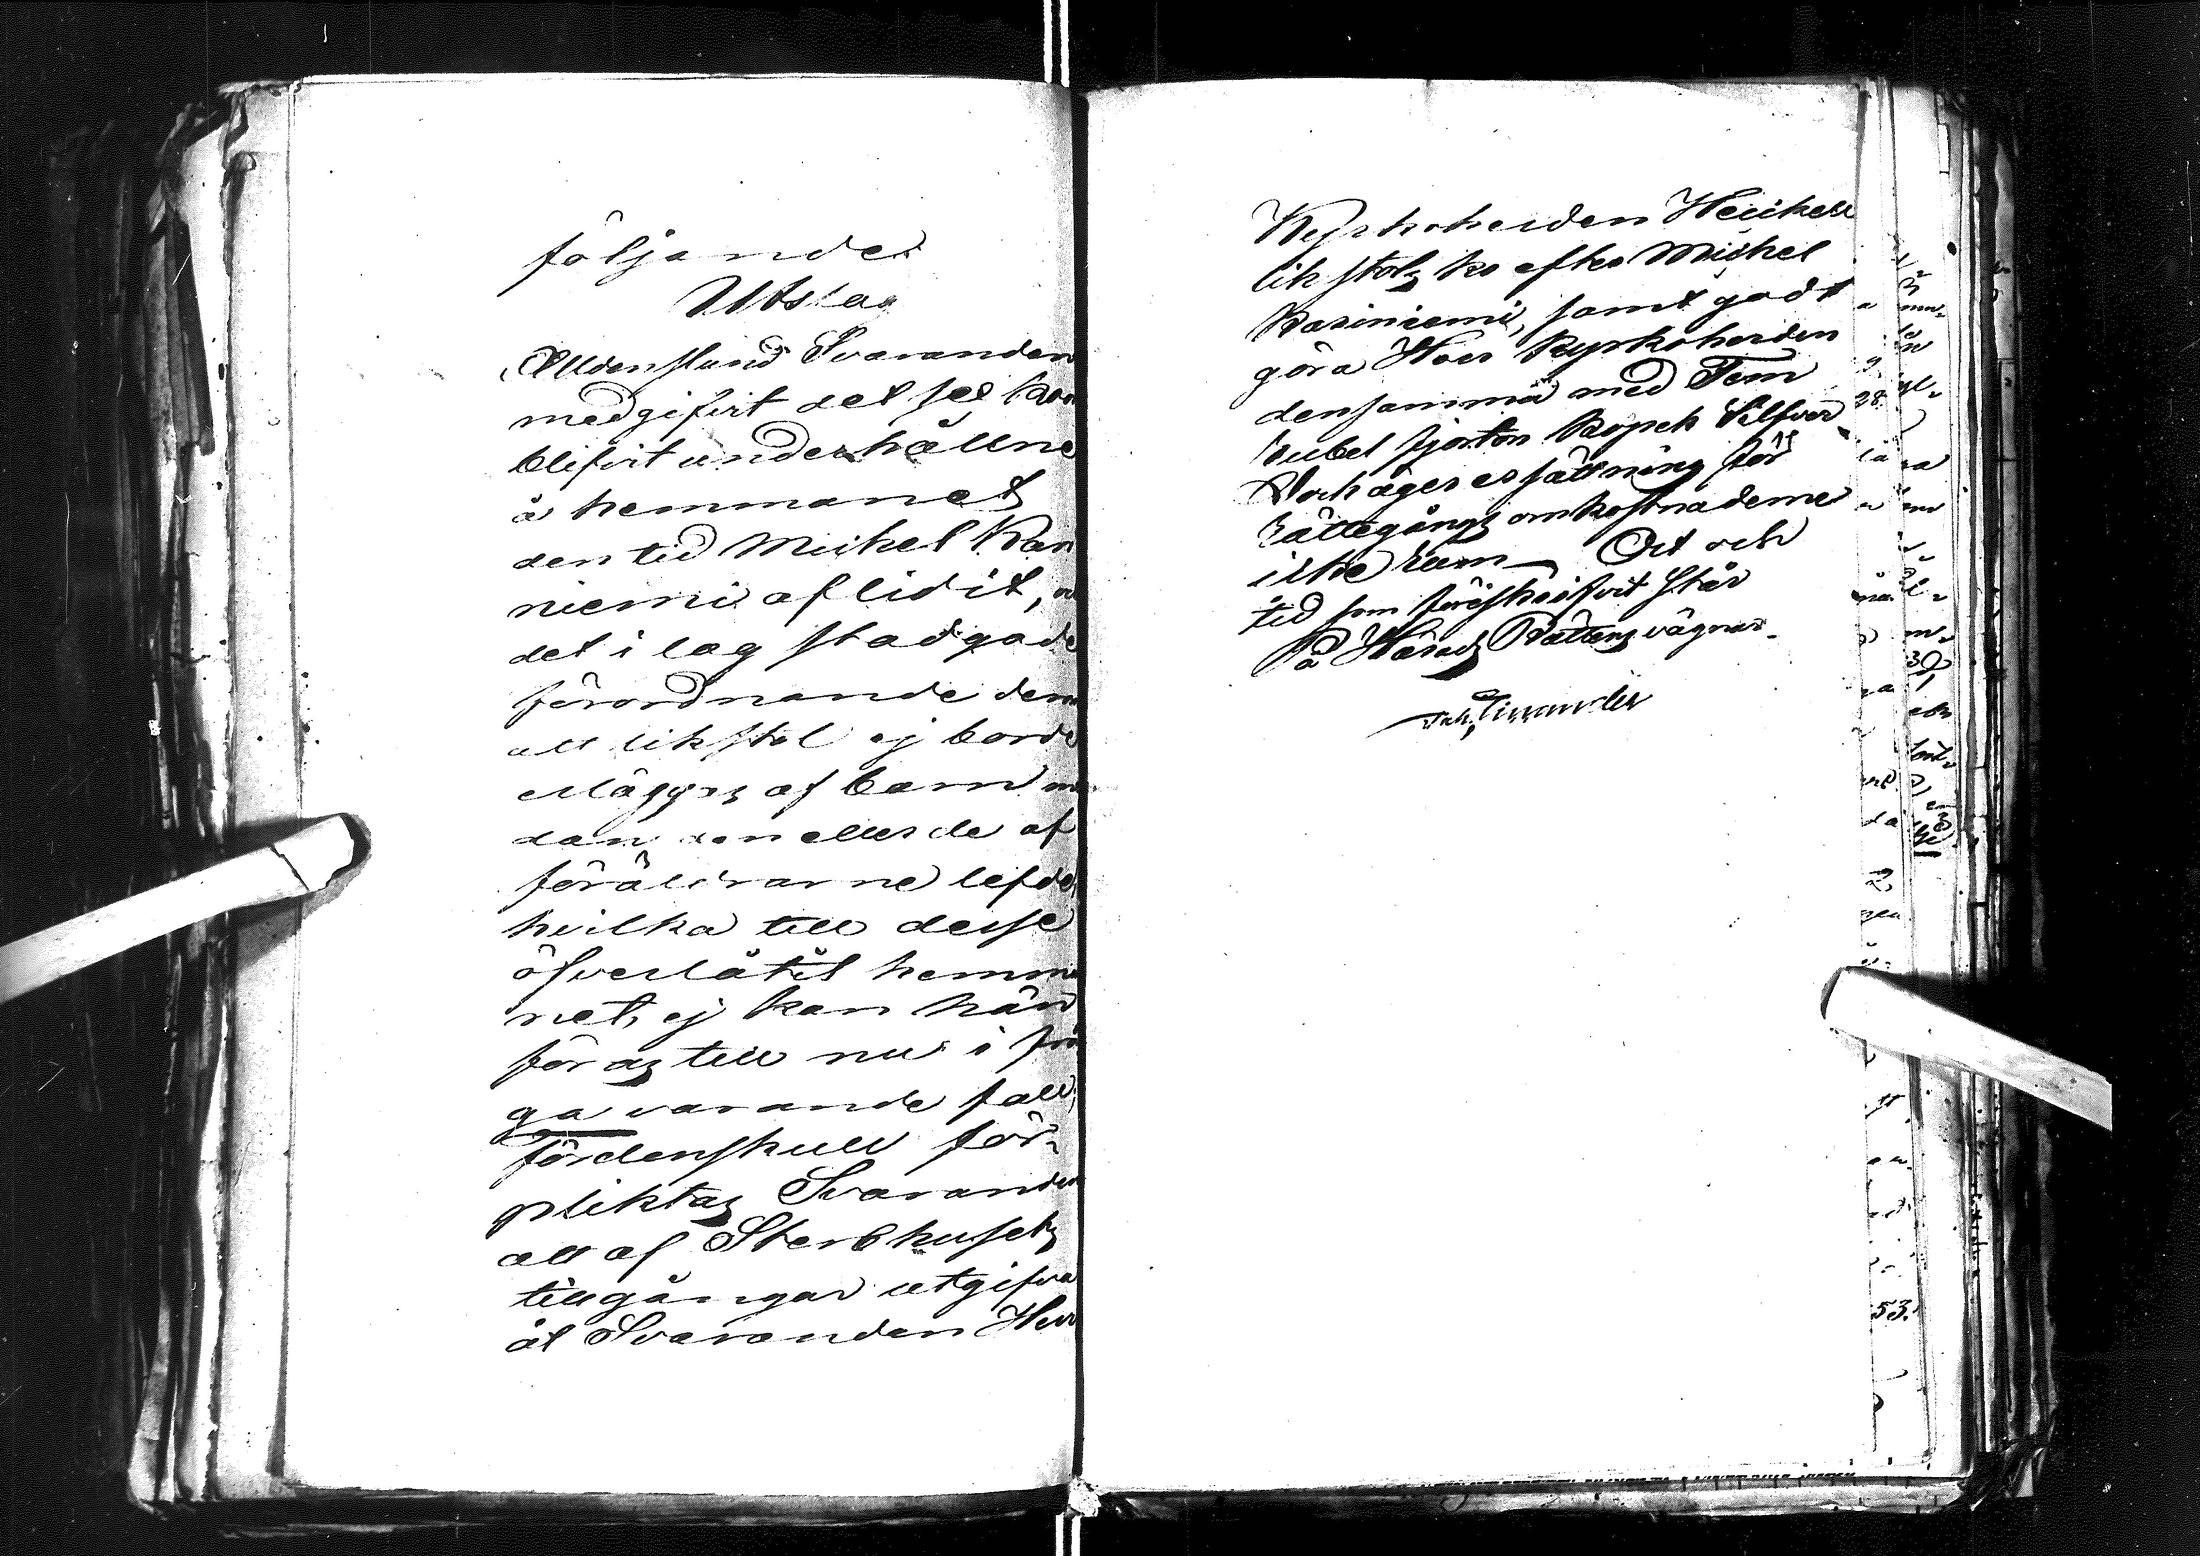 följande
Utslag
Alldenstund Svaranden
medgifvit det sex kor
blifvit underhållne
å hemmanet
den tid Michel Kar
niemi aflidit,
det i lag stadgade
förordnande dem
att likstol ej borde
erläggas af barn
dan den eller de af
föräldrarne lefde,
hvilka till desse
öfverlåtit hemma
net, ej kan hän
föras till nu i frå
ga varande fall,
fördenskull för-
pliktas Svaranden
att af Sterbhusets
tillgångar utgifva
åt Svaranden Herr
Kyrkoherden Heickell
likstols ko efter Michel
Kariniemi, samt godt
göra Herr Kyrkoherden
densamma med Fem
rubel fjorton kopek Silfver
och äger ersättning för
rättegångs omkostnaderne
icke rum Ort och
tid som förutskrifvit står
På Härads Rättens vägnar.
53.